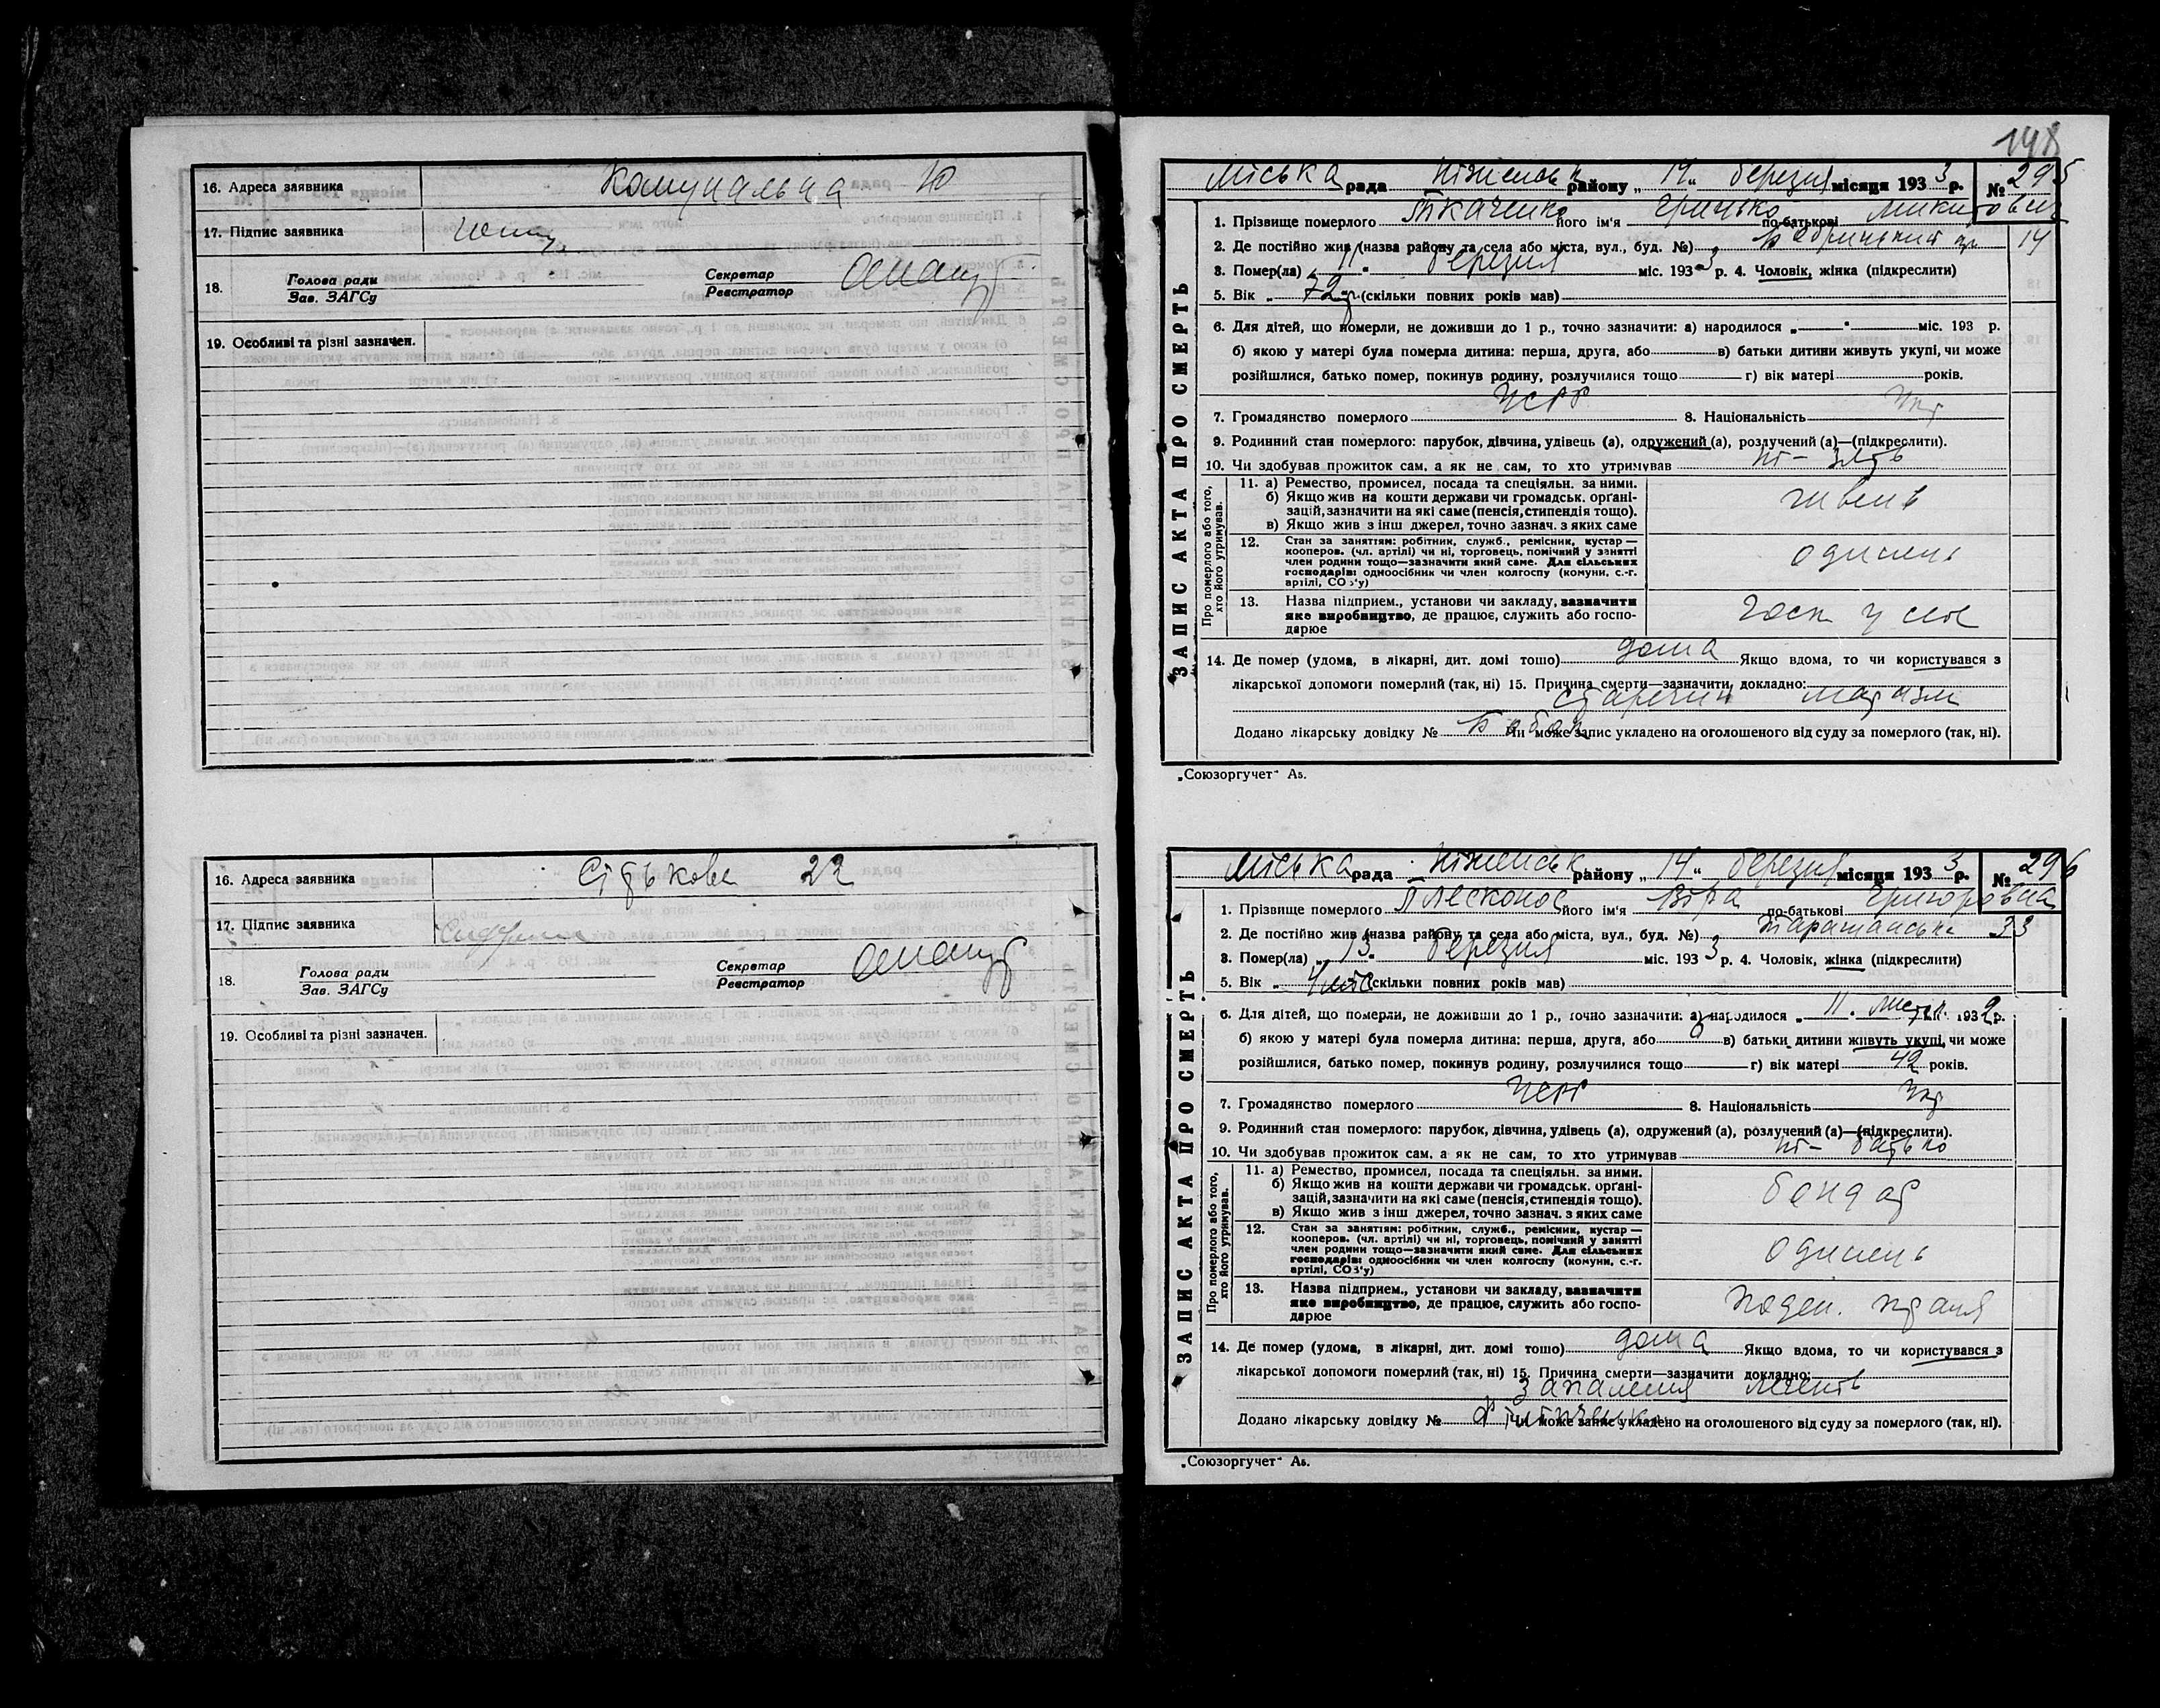 16. Адреса заявника Комунальна 10
17. Підпис заявника
18. Голова ради Секретар
Зав. ЗАГСу Реєстратор
19. Особливі та різні зазначен.
16. Адреса заявника 22
17. Підпис заявника
18. Голова ради Секретар
Зав. ЗАГСу Реєстратор
19. Особливі та різні зазначен.
148
Міська рада Ніженськ району „ 14 “ березня місяця 193 3 р. № 295
ЗАПИС АКТА ПРО СМЕРТЬ
1. Прізвище померлого Ткаченко його ім'я Грицько по-батькові Микитович
2. Де постійно жив (назва району та села або міста, вул., буд. №) 14
3. Помер(ла) „ 11 “ березня міс. 193 3 р. 4. Чоловік, жінка (підкреслити)
5. Вік „ 72 р. (скільки повних років мав)
6. Для дітей, що померли, не доживши до 1 р., точно зазначити: а) народилося „ “ міс. 193 р.
б) якою у матері була померла дитина: перша, друга, або в) батьки дитини живуть укупі, чи може
розійшлися, батько помер, покинув родину, розлучилися тощо г) вік матері років.
7. Громадянство померлого УСРР 8. Національність Укр
9. Родинний стан померлого: парубок, дівчина, удівець (а), одружений (а), розлучений (а)—(підкреслити).
10. Чи здобував прожиток сам, а як не сам, то хто утримував ні – зять
Про померлого або того, хто його утримував.
11. а) Ремество, промисел, посада та спеціяльн. за ними.
б) Якщо жив на кошти держави чи громадськ. органі-
зацій, зазначити на які саме (пенсія, стипендія тощо).
в) Якщо жив з інш джерел, точно зазнач. з яких саме
12. Стан за заняттям: робітник, служб., ремісник, кустар —
кооперов. (чл. артілі) чи ні, торговець, помічний у занятті
член родини тощо—зазначити який саме. Для сільських
господарів: одноосібник чи член колгоспу (комуни, с.-г.
артілі, СОЗ'у)
13. Назва підприєм., установи чи закладу, зазначити
яке виробництво, де працює, служить або госпо-
дарює
14. Де помер (удома, в лікарні, дит. домі тощо) дома Якщо вдома, то чи користувався з
лікарської допомоги померлий (так, ні) 15. Причина смерти—зазначити докладно:
старечий маразм
Додано лікарську довідку № Чи може запис укладено на оголошеного від суду за померлого (так, ні).
„Союзоргучет“ А5.
Міська рада Ніженськ району „ 14 “ березня місяця 193 3 р. № 296
ЗАПИС АКТА ПРО СМЕРТЬ
1. Прізвище померлого Плесконос його ім'я Віра по-батькові Григоровна
2. Де постійно жив (назва району та села або міста, вул., буд. №) Таращанська 33
3. Помер(ла) „ 13 “ березня міс. 193 3 р. 4. Чоловік, жінка (підкреслити)
5. Вік „ 4 міс (скільки повних років мав)
6. Для дітей, що померли, не доживши до 1 р., точно зазначити: а) народилося „ 11 . міс. 193 2 р.
б) якою у матері була померла дитина: перша, друга, або 6 в) батьки дитини живуть укупі, чи може
розійшлися, батько помер, покинув родину, розлучилися тощо г) вік матері 42 років.
7. Громадянство померлого УСРР 8. Національність Укр
9. Родинний стан померлого: парубок, дівчина, удівець (а), одружений (а), розлучений (а)—(підкреслити).
10. Чи здобував прожиток сам, а як не сам, то хто утримував ні – батько
Про померлого або того, хто його утримував.
11. а) Ремество, промисел, посада та спеціяльн. за ними.
б) Якщо жив на кошти держави чи громадськ. органі-
зацій, зазначити на які саме (пенсія, стипендія тощо).
в) Якщо жив з інш джерел, точно зазнач. з яких саме
бондар
12. Стан за заняттям: робітник, служб., ремісник, кустар —
кооперов. (чл. артілі) чи ні, торговець, помічний у занятті
член родини тощо—зазначити який саме. Для сільських
господарів: одноосібник чи член колгоспу (комуни, с.-г.
артілі, СОЗ'у)
13. Назва підприєм., установи чи закладу, зазначити
яке виробництво, де працює, служить або госпо-
дарює
поден. праця
14. Де помер (удома, в лікарні, дит. домі тощо) дома Якщо вдома, то чи користувався з
лікарської допомоги померлий (так, ні) 15. Причина смерти—зазначити докладно:
Запалення легенів
Додано лікарську довідку № Чи може запис укладено на оголошеного від суду за померлого (так, ні).
„Союзоргучет“ А5.